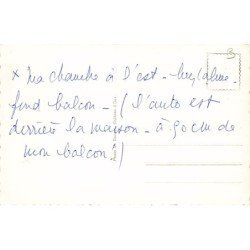 x Ma chambre à l'est -
fond balcon - (l'auto est
derrière la maison - à 90 cm de
mon balcon !)